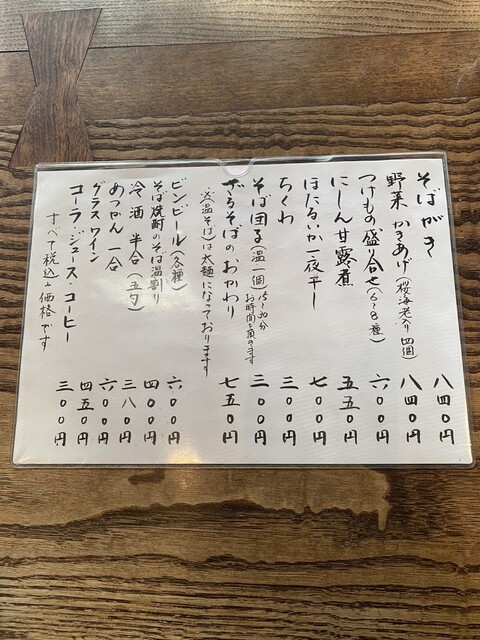 そばがき 八四〇円
野菜 かきあげ(桜海老入り 四個) 八四〇円
つけもの盛り合せ(6〜8種) 六〇〇円
にしん甘露煮 五五〇円
ほたるいか一夜干し 七〇〇円
ちくわ 三〇〇円
そば団子(温一個) 15〜20分お時間を頂きます 三〇〇円
ざるそばのおかわり 七五〇円
※(温そば)は太麺になっております
ビンビール(各種) 六〇〇円
そば焼酎のそば湯割り 四〇〇円
冷酒 半合(五勺) 三八〇円
あつかん 一合 六〇〇円
グラスワイン 四五〇円
コーラ・ジュース・コーヒー 三〇〇円
すべて税込み価格です